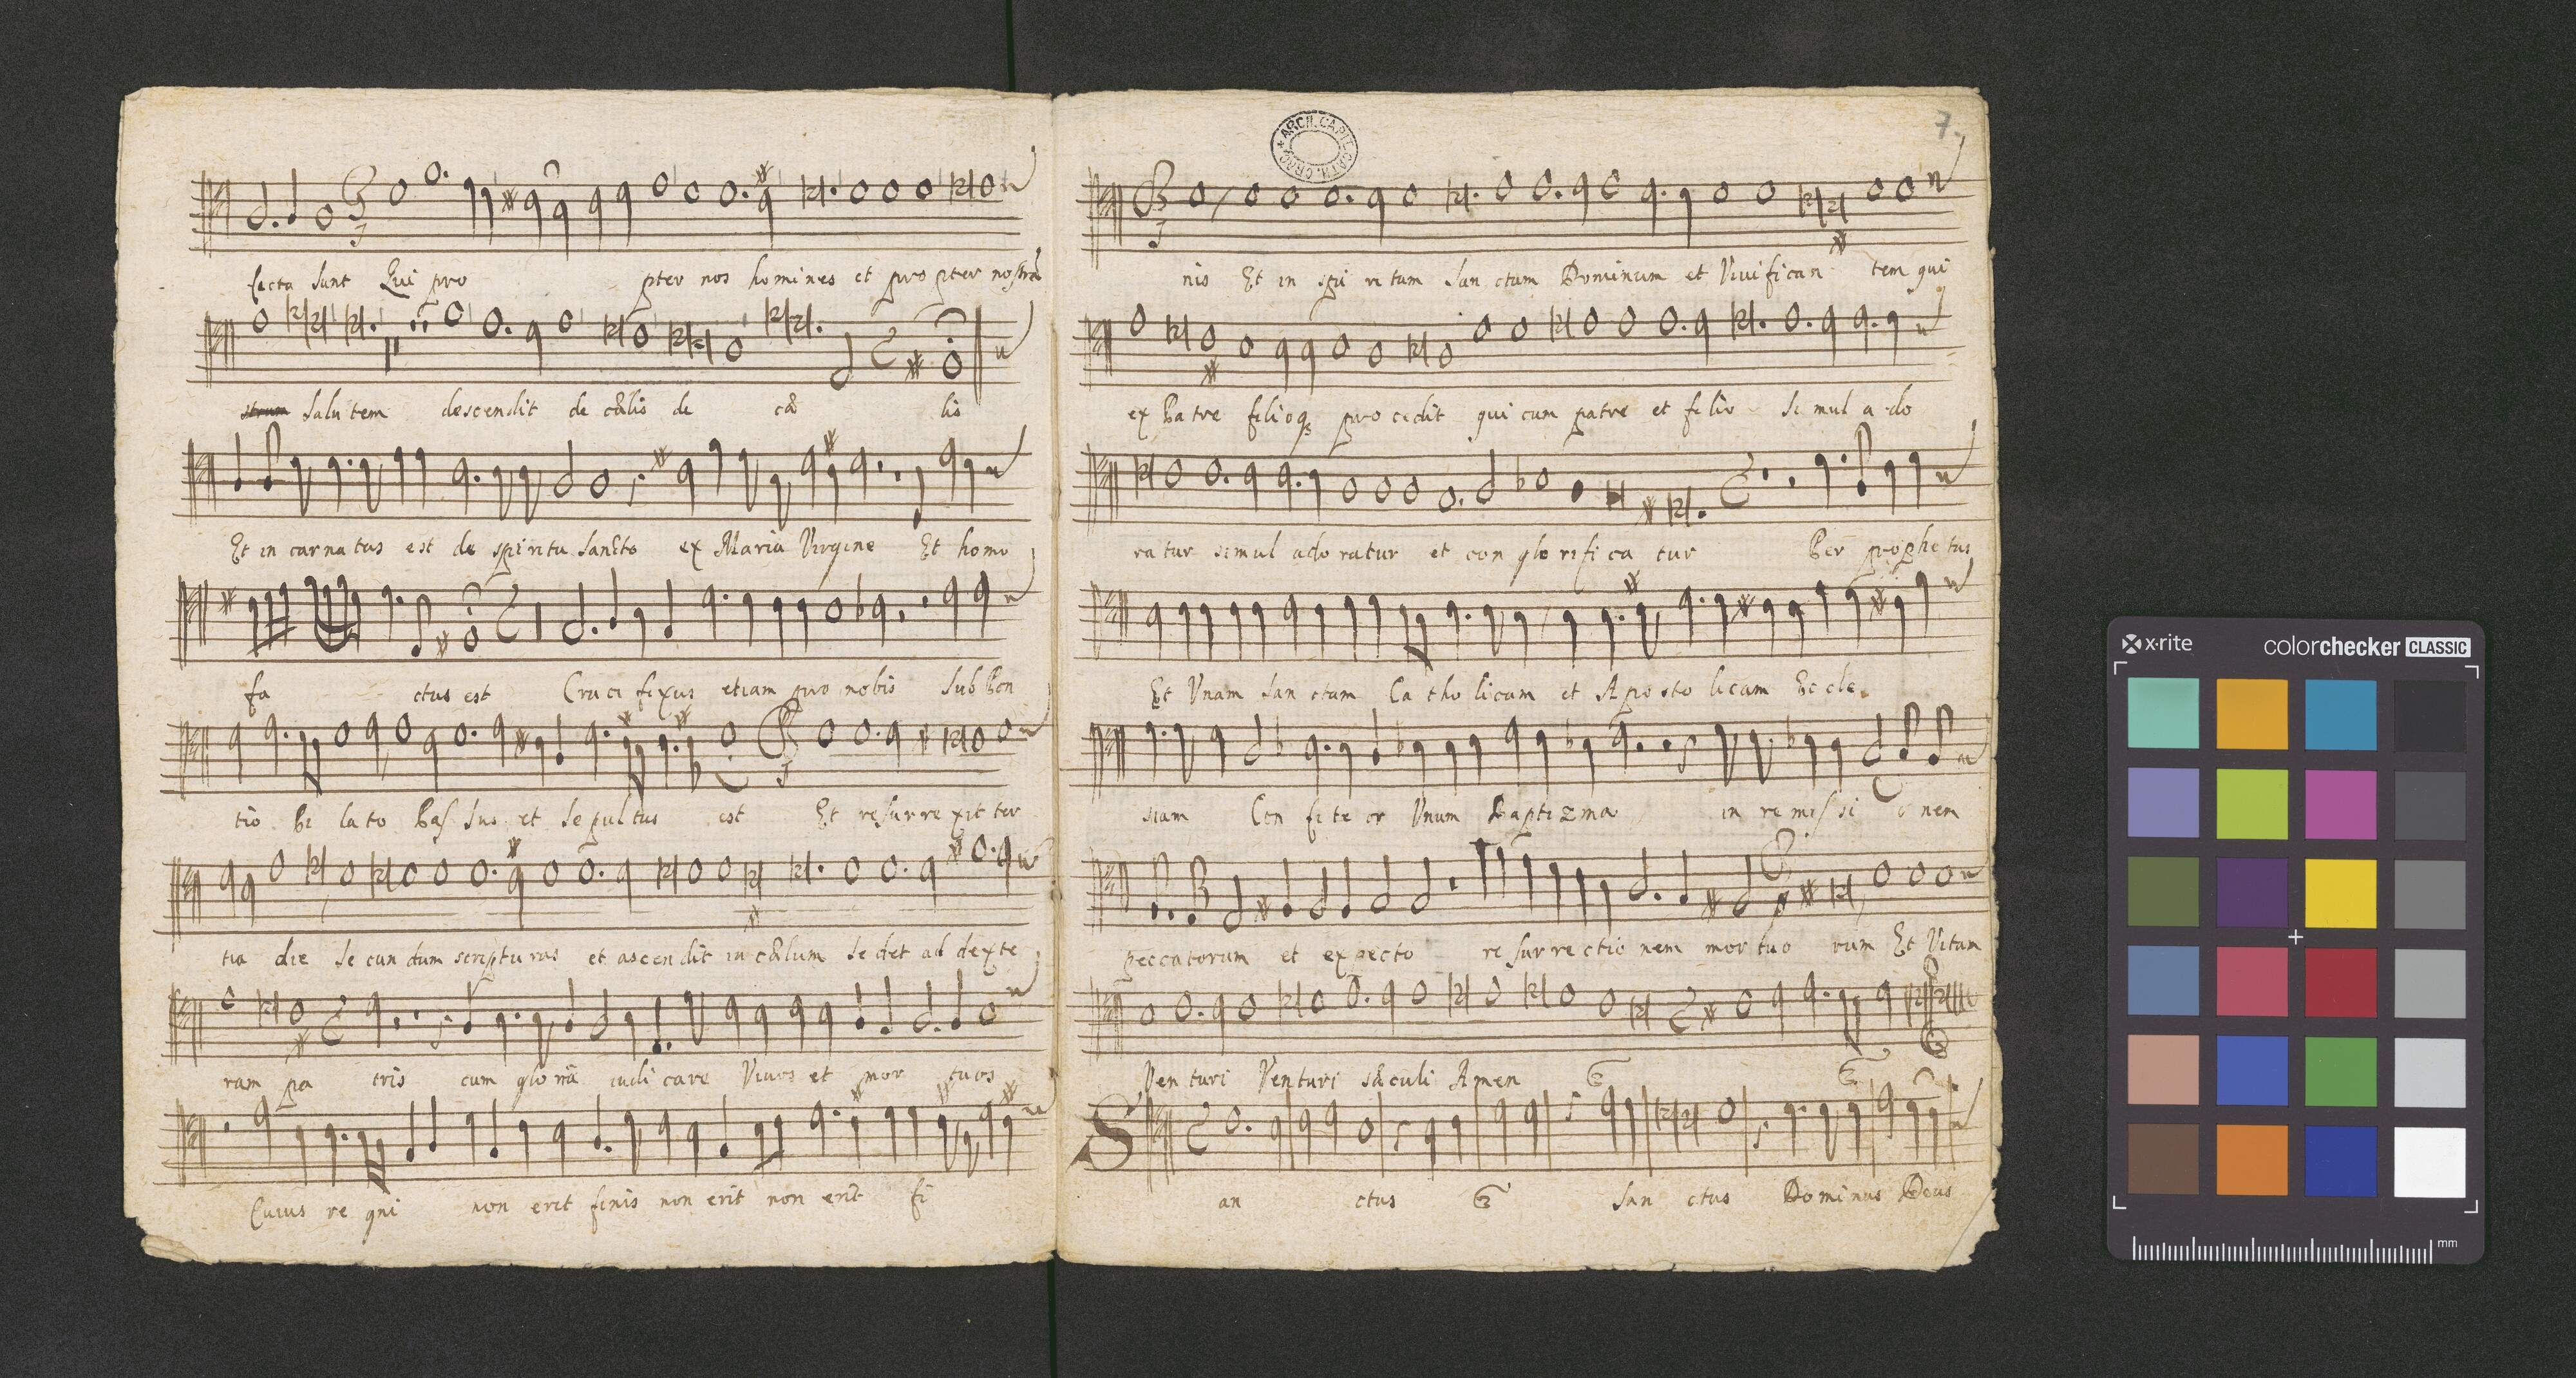 fecta sunt Qui pro pter nos homines et propter nostrã
strum salutem descendit de cælis de cæ lis
Et in carnatus est de spiritu sancto ex Maria Virgine Et homo
fa ctus est Cruci fixus etiam pro nobis sub Pon
tio Pi lato Pas sus et sepultus est Et resurrexit ter
tia die Se cun dum scripturas et ascendit in cælum Sedet ad dexte
ram pa tris cum gloriâ iudi care Vivos et mor tuos
Cuius re gni non erit finis non erit non erit fi
7.
ARCH. CAPI
nis Et in spi ritum San ctum Dominum et Vivifican tem qui
ex Patre filioq3 pro cedit qui cum patre et filio Si mul a do
ratur simul adoratur et con glo rifi ca tur Per prophetas
Et Vnam San ctam Ca tho licam et Aposto licam Eccle
siam Con fi te or Vnum Baptizma in remissi o nem
peccatorum et expecto re surrectio nem mortuo rum Et Vitam
Ven turi Venturi sæculi Amen
San ctus San ctus Dominus Deus
x·rite colorchecker CLASSIC
mm